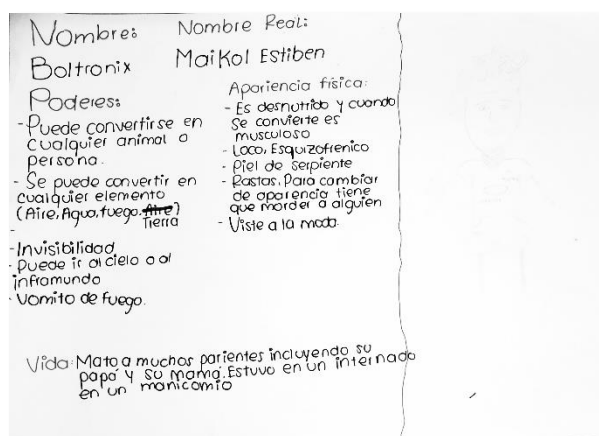 Nombre:
Boltronix
Nombre Real:
Maikol Estiben
Poderes:
-Puede convertirse en
cualquier animal o
persona.
- Se puede convertir en
cualquier elemento
(Aire, Agua, fuego, Aire)
Tierra
-
-Invisibilidad
- Puede ir al cielo o al
inframundo
- Vomito de fuego.
Apariencia física:
- Es desnutrido y cuando
se convierte es
musculoso
- Loco, Esquizofrenico
- Piel de serpiente
- Rastas. Para cambiar
de aparencia tiene
que morder a alguien
- Viste a la moda.
Vida: Mato a muchos parientes incluyendo su
papá y su mamá. Estuvo en un internado
en un manicomio